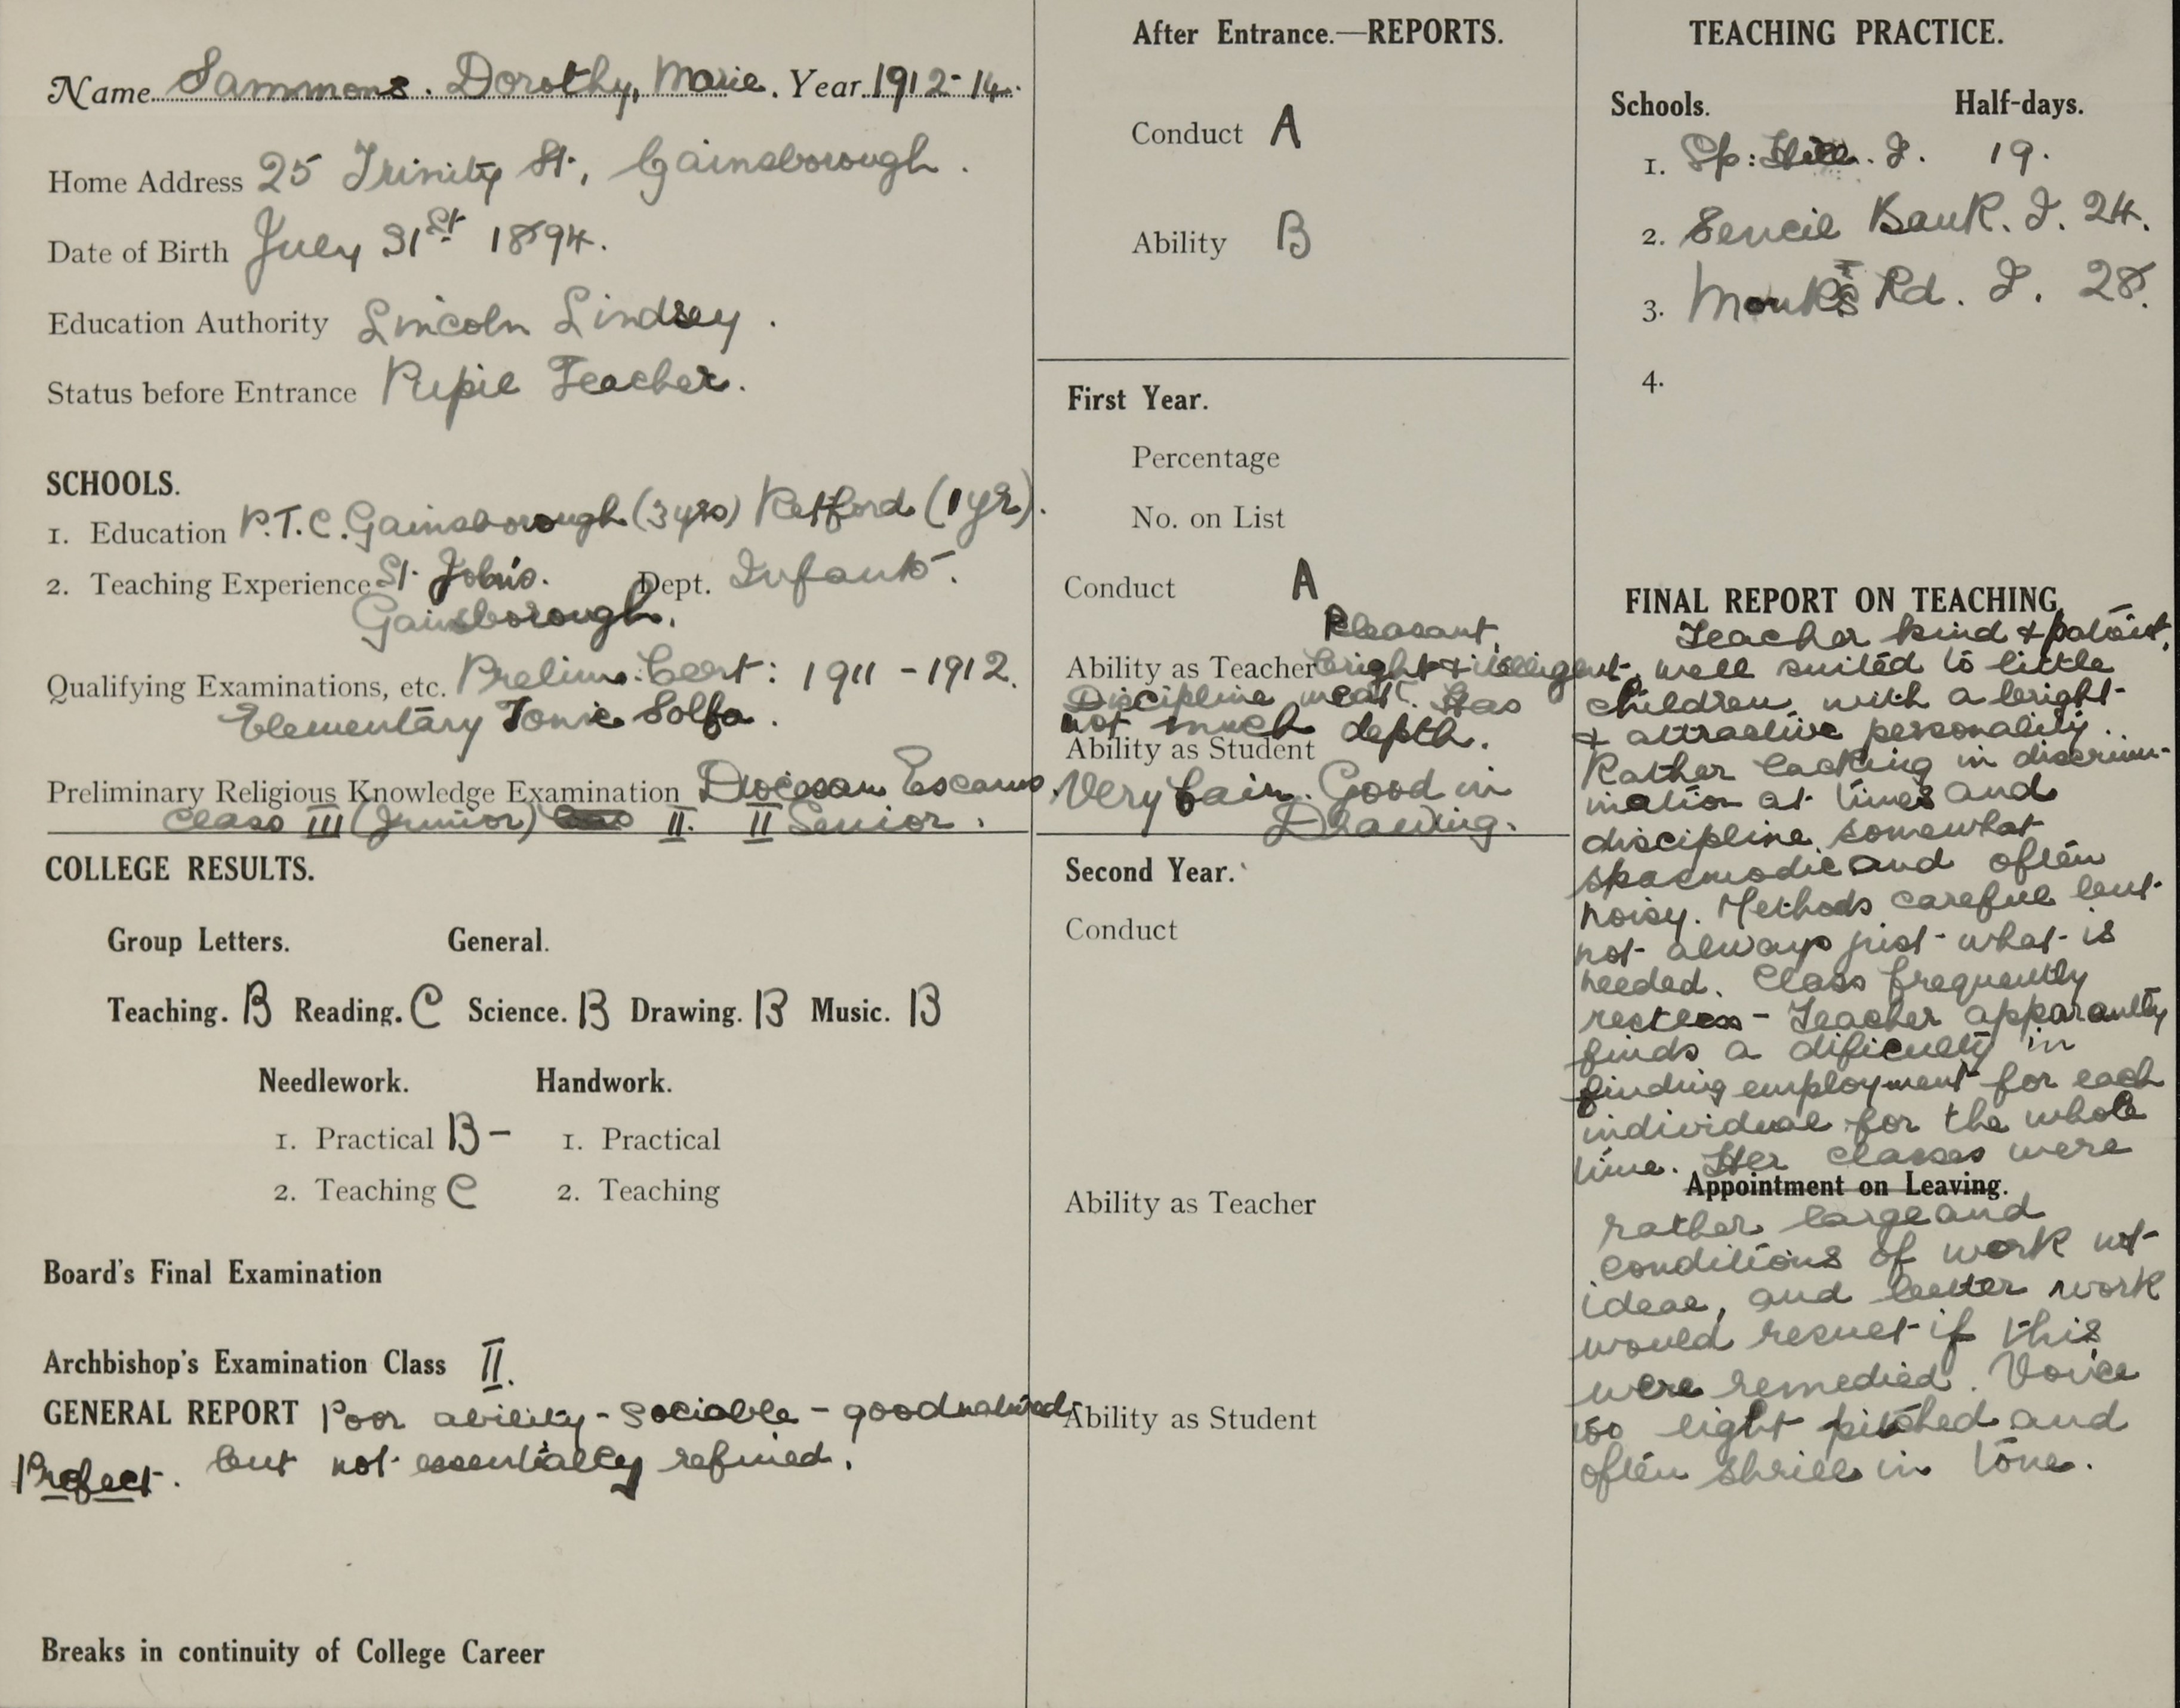 Name Sammons. Dorothy, Marie. Year 1912-14.
Home Address 25 Trinity St, Gainsborough.
Date of Birth July 31st 1894.
Education Authority Lincoln Lindsey.
Status before Entrance Pupil Teacher.
SCHOOLS.
1. Education P.T.C. Gainsborough (3 yrs) Retford (1 yr).
2. Teaching Experience St. John's. Dept. Infants.
Gainsborough.
Qualifying Examinations, etc. Prelim. Cert: 1911 - 1912.
Elementary Tonic Solfa.
Preliminary Religious Knowledge Examination Diocesan Exams.
Class III (Junior) II. II Senior.
COLLEGE RESULTS.
Group Letters. General.
Teaching. B Reading. C Science. B Drawing. B Music. B
Needlework. Handwork.
1. Practical B- 1. Practical
2. Teaching C 2. Teaching
Board's Final Examination
Archbishop's Examination Class II.
GENERAL REPORT Poor ability - sociable - goodnatured
Prefect. but not essentially refined.
Breaks in continuity of College Career
After Entrance.—REPORTS.
Conduct A
Ability B
First Year.
Percentage
No. on List
Conduct A
Pleasant,
Ability as Teacher bright & intelligent.
Discipline weak. Has
not much depth.
Ability as Student
Very fair. Good in
Drawing.
Second Year.
Conduct
Ability as Teacher
Ability as Student
TEACHING PRACTICE.
Schools. Half-days.
1. Sp: Hill. I. 19.
2. Sincil Bank. I. 24.
3. Monks Rd. I. 28.
4.
FINAL REPORT ON TEACHING.
Teacher kind & patient,
well suited to little
children, with a bright
& attractive personality.
Rather lacking in discrim-
ination at times and
discipline somewhat
spasmodic and often
noisy. Methods careful but
not always just what is
needed. Class frequently
restless - Teacher apparantly
finds a dificulty in
finding employment for each
individual for the whole
time. Her classes were
Appointment on Leaving.
rather large and
conditions of work not
ideal, and better work
would result if this
were remedied. Voice
too light pitched and
often shrill in tone.